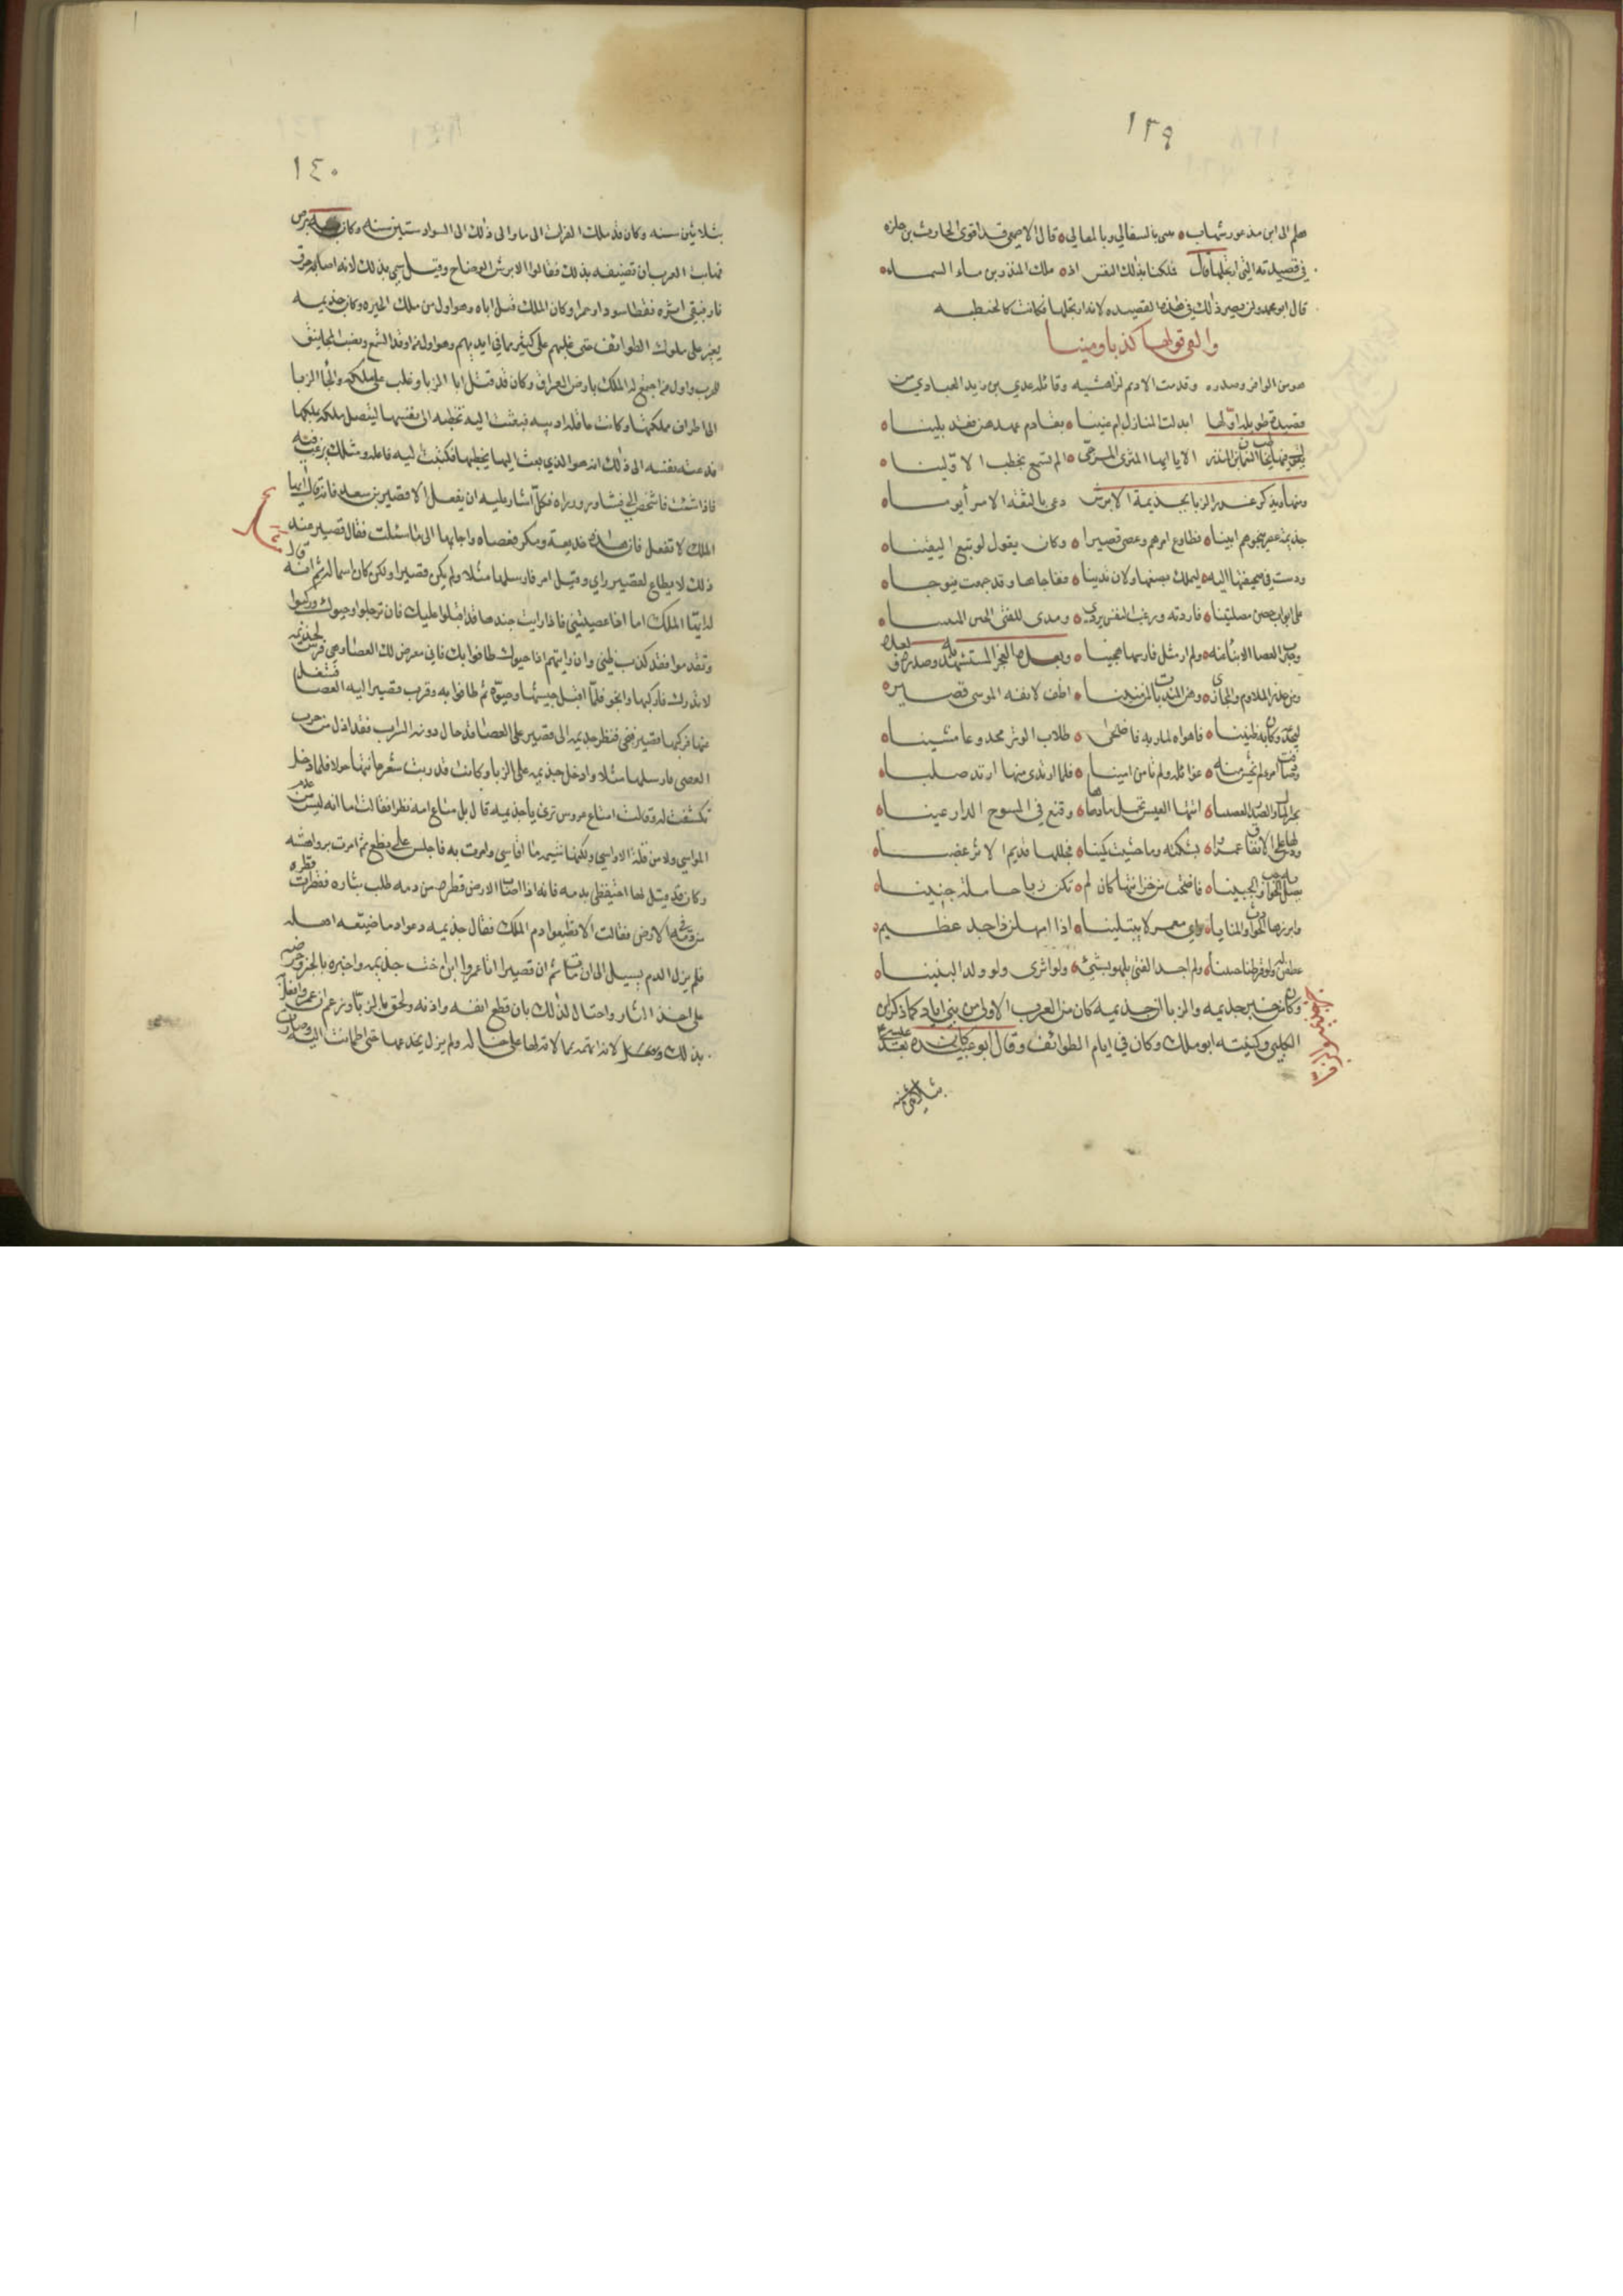 ١٣٩
هلم الى ابن مذعور شهاب ه بالسفالي وبالمعالي ه قال الاصمعي قد اقوى الحارث بن حلزه
في قصيدته التي ارتجلها قال فملكنا بذلك الناس اذ ه ملك المنذر بن ماء السماء ه
قال ابو محمد ولن يصير ذلك في هذه القصيده لانه ارتجلها فكانت كالخطبه
والفى قولها كذبا ومينا
هو من الوافر وصدره وقدمت الاديم لراهشيه وقائله عدي بن زيد العبادي من
قصيدة طويله اولها ابدلت المنازل ام عنينا ه تقادم عهدهن فقد بلينا ه
الا يا ايها المثرى المرجى ه الم تسمع بخطب الاولينا ه
ومنها ويذكر غدر الزبا بجذيمة الابرش دعى بالبقه الامر أيوما
جذيمة ينجوهم ثبينا ه فطاوع امرهم وعصى قصيرا ه وكان يقول لو تبع اليقينا ه
ودست في صحيفتها اليه ه ليملك بضعها ولان تدينا ه ففاجاها وقد جمعت فيوجا ه
على ابواب حصن مصلتينا ه فاردته ورغب النفس يردي ه ويبدى للفتى الحين المبينا ه
وخبرت العصا الانباء عنه ه ولم ار مثل فارسها هجينا ه وبعده العجز المستشهد به وصدره في
ومن حذر الملاوم والمخازي ه وهن المنديات لمن منينا ه اطف لانفه الموسى قصير ه
ليجدعه وكان به ظنينا ه فاهواه لمارنه فاضحى ه طلاب الوتر مجدوعا مشينا ه
وصادفت امرءا لم تخش منه ه غوائله ولم تامن امينا ه فلما ارتد منها ارتد صلبا ه
اتتها العيس تحمل ما دهاها ه وقنع في المسوح الدارعينا ه
ودس لها على الانفاق عمرا ه بشكته وما خشيت كمينا ه فجللها قديم الاثر عضبا ه
يصك به الحواجب والجبينا ه فاضحت من خزائنها كان لم ه تكن زبا حاملة جنينا ه
وابرزها الحوادث والمنايا ه واي معمر لا يبتلينا ه اذا امهلن ذا جد عظيم ه
عطفن له ولو فرطن حينا ه ولم اجد الفتى يلهو بشئ ه ولو اثرى ولو ولد البنينا ه
وكان من خبر جذيمه والزبا ان جذيمه كان من العرب الاولى من بني اياد كما ذكر ابن
الكلبي وكنيته ابو ملك وكان في ايام الطوائف وقال ابو عبيده كان بعد عيسى
بثلاثين سنه
١٤٠
بثلاثين سنه وكان قد ملك الفرات الى ما والى ذلك الى السواد ستين سنه وكان به برص
فهاب العرب ان تصفه بذلك فقالوا الابرش والوضاح وقيل سمي بذلك لانه اصابه حرق
نار فبقي اثره نقط سود او حمرا وكان الملك قبل اباه وهو اول من ملك الحيره وكان جذيمه
يغير على ملوك الطوائف حتى غلبهم على كثير مما في ايديهم وهو اول من اوقد الشمع ونصب المجانيق
للحرب واول من اجتمع له الملك بارض العراق وكان قد قتل ابا الزبا وغلب على ملكه والجأ الزبا
الى اطراف مملكتها وكانت عاقله اديبه فبعثت اليه تخطبه الى نفسها ليتصل ملكه بملكها
فدعته نفسه الى ذلك انه هو الذي بعث اليها يخطبها فكتبت اليه فاعله ومثلك يرغب فيه
فاذا شئت فاشخص الي فشاور وزراه فكل اشار عليه ان يفعل الا قصير بن سعد فانه قال ايها
الملك لا تفعل فان هذه خديعة ومكر فعصاه واجابها الى ما سئلت فقال قصير عند
ذلك لا يطاع لقصير راي وقيل امر فارسلها مثلا ولم يكن قصيرا ولكن كان اسما له ثم انه قال
له ايها الملك اما اذا عصيتني فاذا رايت جندها قد اقبلوا عليك فان ترجلوا وحيوك وركبوا
وتقدموا فقد كذب ظني وان رايتهم اذا حيوك طافوا بك فاني معرض لك العصا وهي فرس لجذيمه
لا تدرك فاركبها وانج فلما اقبل جيشها وحيوه ثم طافوا به وقرب قصير اليه العصا فشغل
عنها فركبها قصير فنجى فنظر جذيمه الى قصير على العصا قد حال دونه السراب فقد اذل من جرت
العصى فارسلها مثلا وادخل جذيمه على الزبا وكانت قد ربت شعر عانتها حولا فلما دخل
تكشفت له وقالت امتاع عروس ترى يا جذيمه قال بل متاع امه بظرا فقالت اما انه ليس من عدم
المواسي ولا من قلة الاواسي ولكنها شيمه ما اقاسي وامرت به فاجلس على نطع ثم امرت برواهشه
وكان قد قيل لها احتفظي بدمه فانه اذا اصاب الارض قطره من دمه طلب بثاره فقطرت قطره
من دمه في الارض فقالت لا تضيعوا دم الملك فقال جذيمه دعوا دما ضيعه اهله
فلم يزل الدم يسيل الى ان مات ثم ان قصيرا اتا عمروا ابن اخت جذيمه واخبره بالخبر وحرضه
على اخذ الثار واحتال لذلك بان قطع انفه واذنه ولحق بالزبا وزعم ان عمروا فعل
بذلك لانه اتهمه بما لاته لها على خاله ولم يزل يخدعها حتى اطمانت اليه وصارت